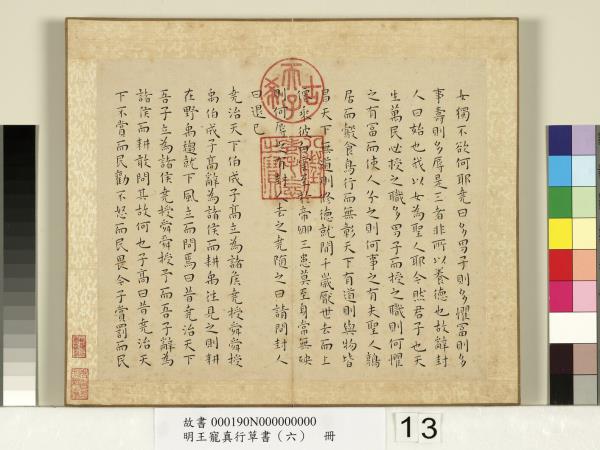 女獨不欲何耶堯曰多男子則多懼富則多
事壽則多辱是三者非所以養德也故辭封
人曰始也我以女為聖人耶今然君子也天
生萬民必授之職多男子而授之職則何懼
之有富而使人分之則何事之有夫聖人鶉
居而鷇食鳥行而無彰天下有道則與物皆
昌天下無道則修德就閒千歲厭世去而上
僊乘彼白雲至於帝鄉三患莫至身常無殃
則何辱之有封人去之堯隨之曰請問封人
曰退已
堯治天下伯成子高立為諸侯堯授舜舜授
禹伯成子高辭為諸侯而耕禹往見之則耕
在野禹趨就下風立而問焉曰昔堯治天下
吾子立為諸侯堯授舜舜授予而吾子辭為
諸侯而耕敢問其故何也子高曰昔堯治天
下不賞而民勸不怒而民畏今子賞罰而民
古希天子
故書 000190N000000000
明王寵真行草書（六） 冊
13